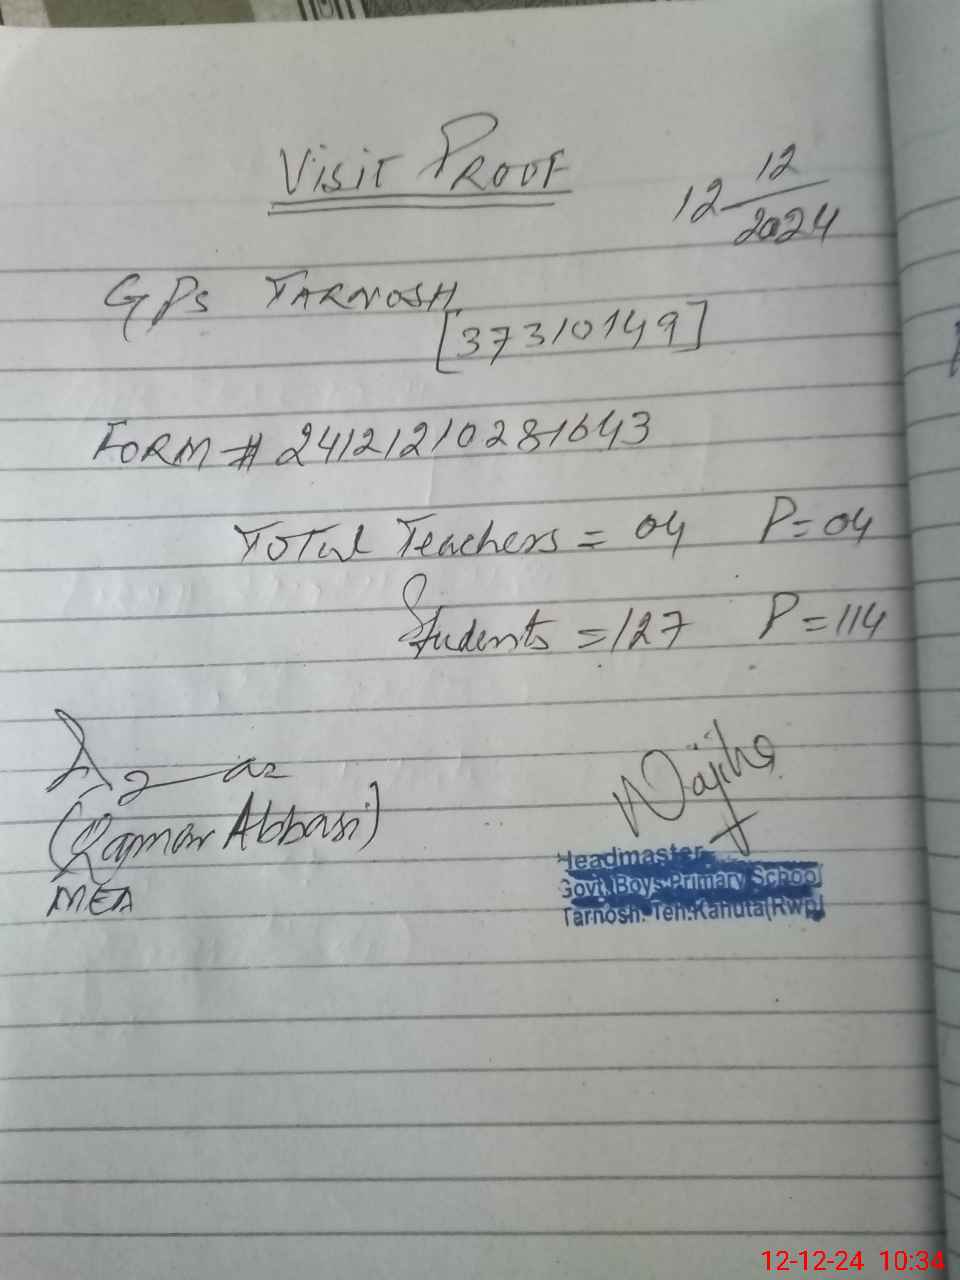 Visit Proof
12 12/2024
GPS TARNOSH
[37310149]
FORM # 24121210281643
Total Teachers = 04 P=04
Students = 127 P=114
(Qamar Abbasi)
MEA
Najiha
Headmaster
Govt. Boys Primary School
Tarnosh. Teh:Kahuta(Rwp)
12-12-24 10:34